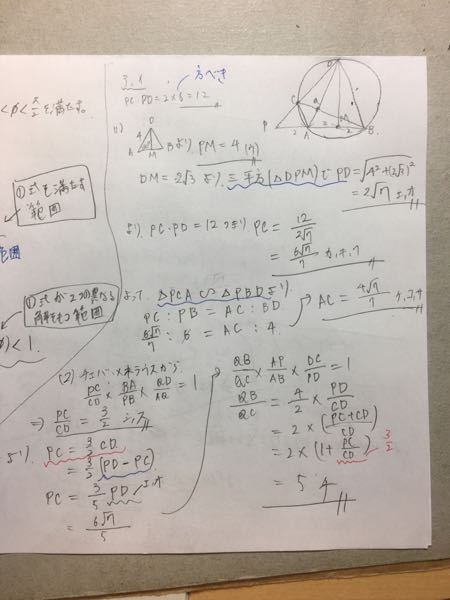 <φ<π/2 を満たす。
①式を満たす
範囲
範囲
①式が2つ異なる
解をもつ範囲
)<1.
3,1
方べき
PC・PD=2×6=12
(1)
D
4
A M B より PM=4(ウ)
DM=2√3 より、三平方(△DPM)で PD=√(4²+(2√3)²)
=2√7 エ,オ
より PC・PD=12 つまり PC=12/2√7
=6√7/7 カ,キ,ク
よって △PCA∽△PBDより
PC:PB=AC:BD
6√7/7:6=AC:4
→ AC=4√7/7 ケ,コ,サ
(2) チェバ・メネラウスから
PC/CD×BA/PB×QD/AQ=1
⇒ PC/CD=3/2 シ,ス
より PC=3/2 CD
=3/2(PD-PC)
PC=3/5 PD エ,オ
=6√7/5
QB/QC×AP/AB×DC/PD=1
QB/QC=4/2×PD/CD
=2×(PC+CD)/CD
=2×(1+PC/CD) 3/2
=5 タ
D
C
Q
P
2
A
2
M
2
B